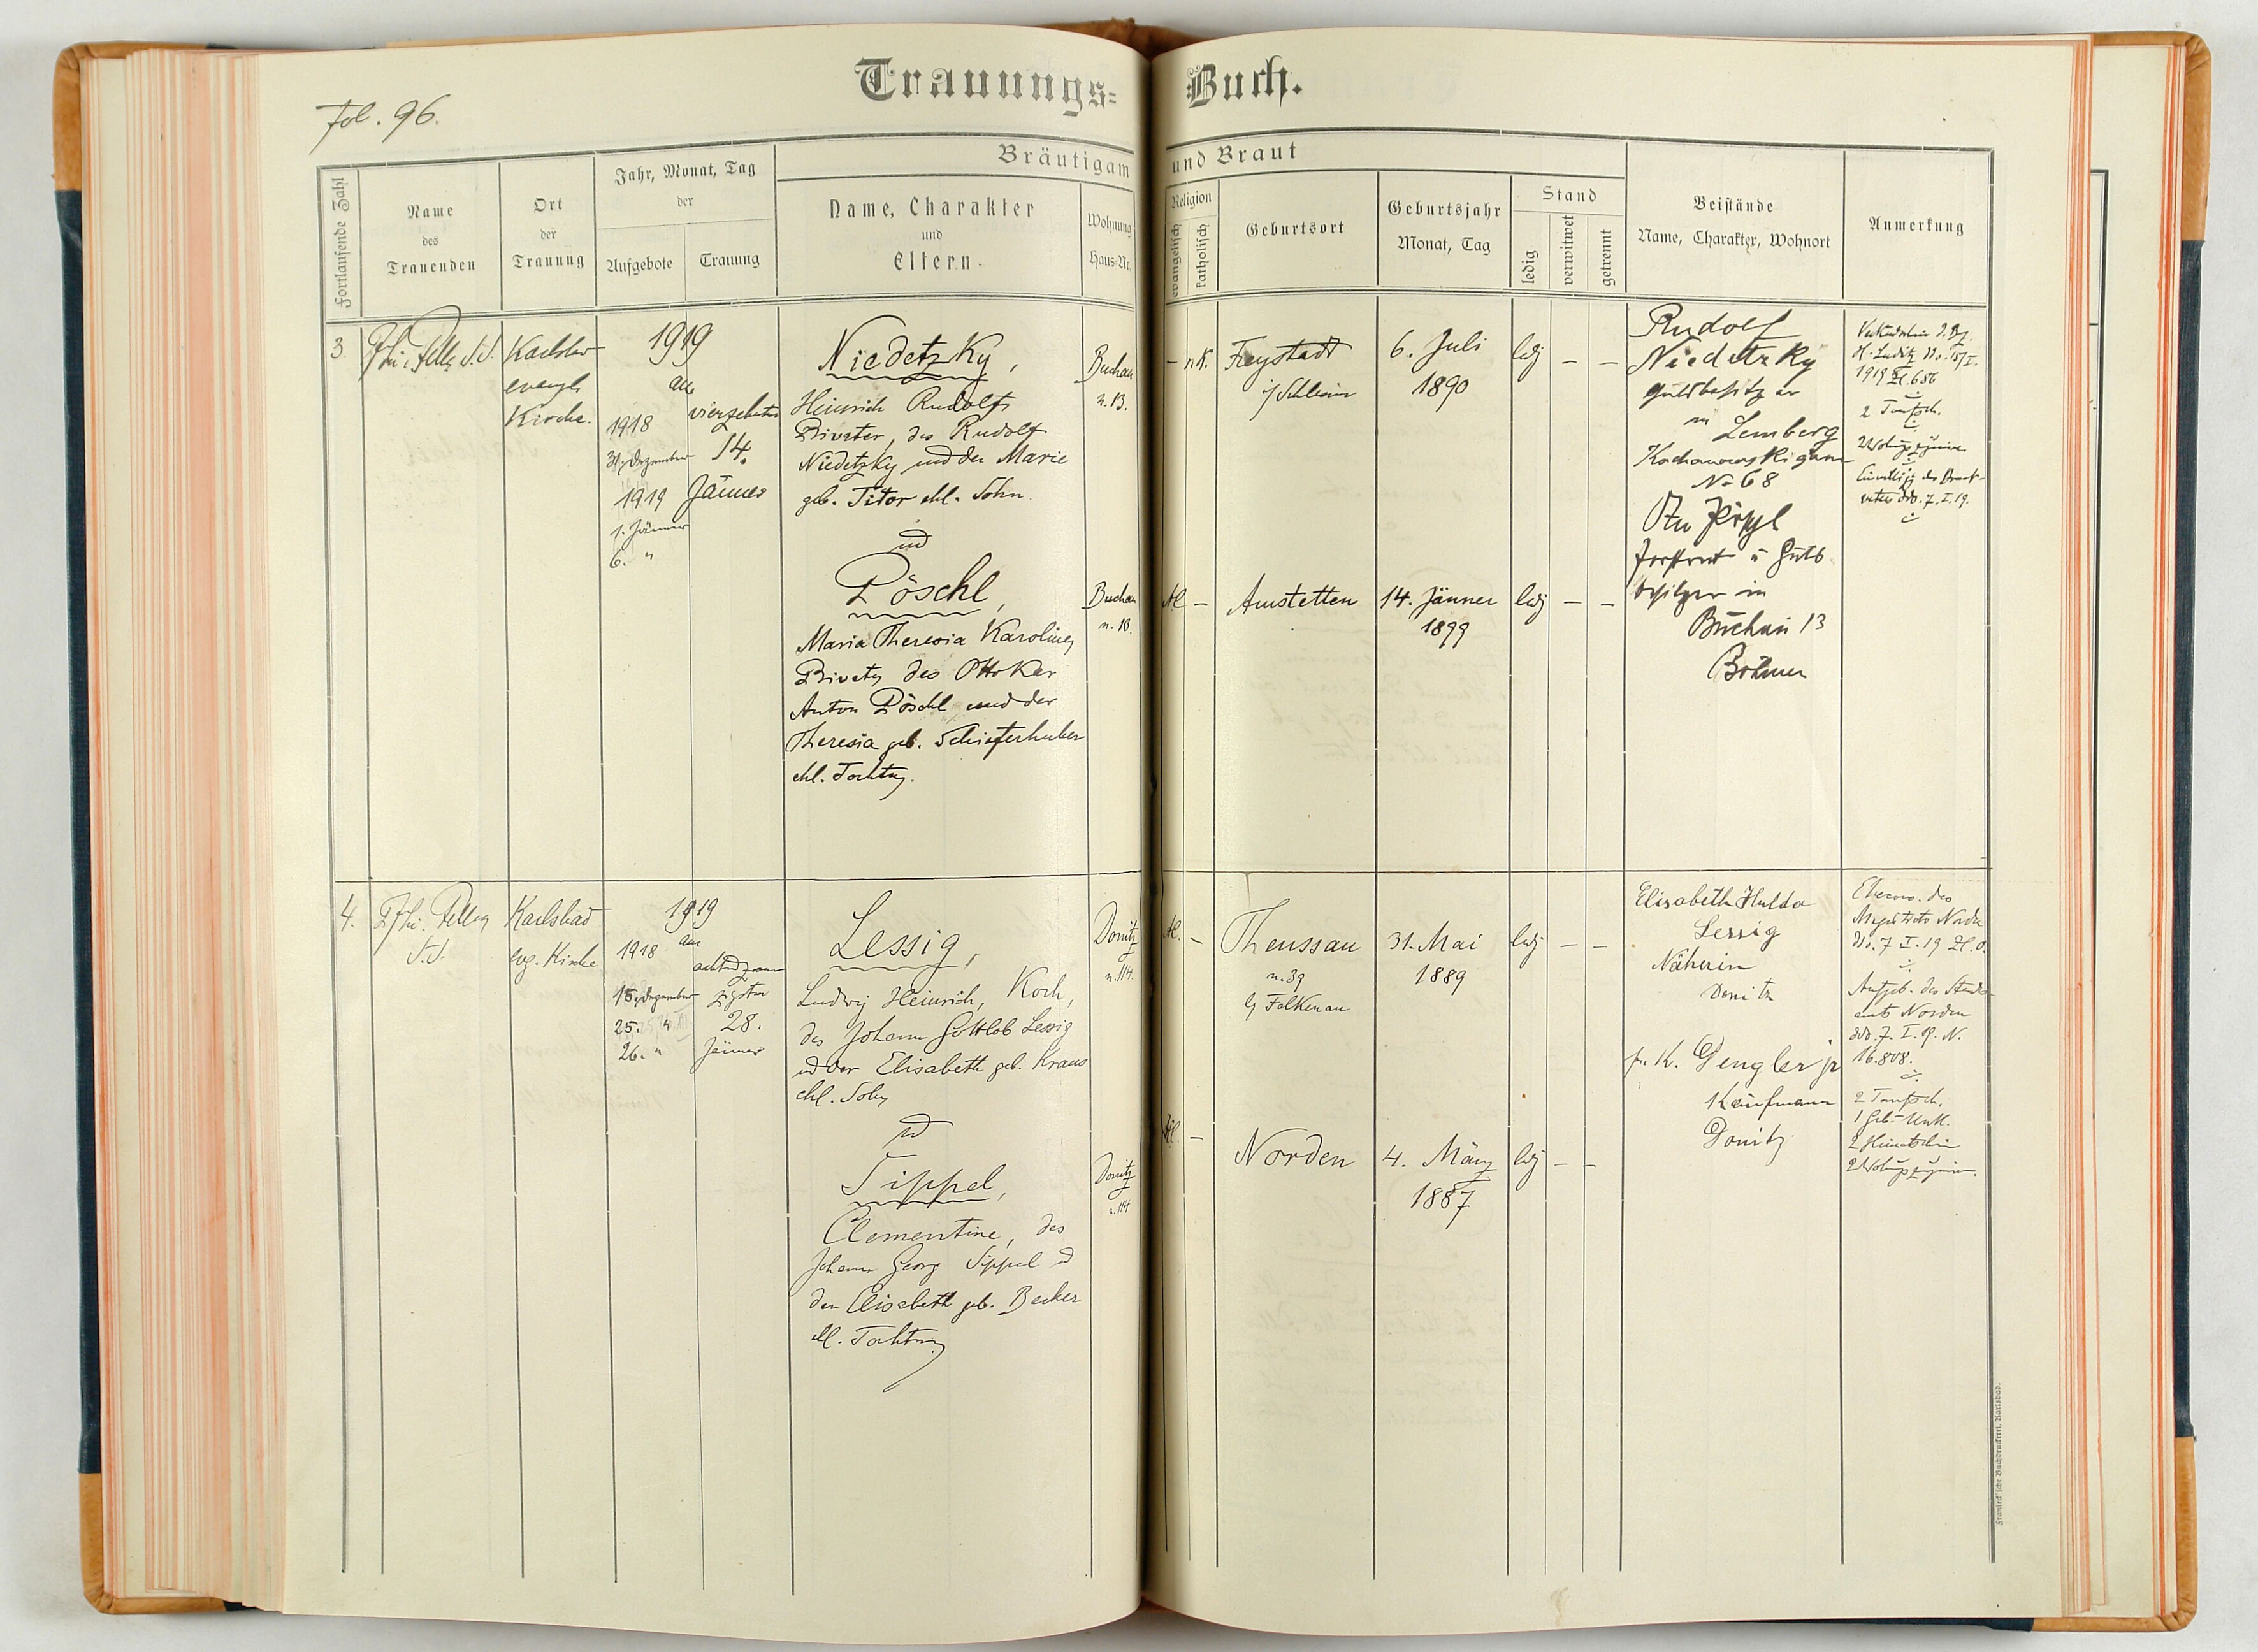 Trauungs= Buch.
Fol. 96.
Bräutigam und Braut
Fortlaufende Zahl
Name
des
Trauenden
Ort
der
Trauung
Jahr, Monat, Tag
der
Aufgebote
Trauung
Name, Charakter
und
Eltern.
Wohnung
Haus-Nr.
Religion
evangelisch
katholisch
Geburtsort
Geburtsjahr
Monat, Tag
Stand
ledig
verwitwet
getrennt
Beistände
Name, Charakter, Wohnort
Anmerkung
3
evangl.
Kirche.
1919
am
1918
31. Dezember
1919
1. Jänner
6. "
vierzehnten
14.
Jänner
Niedetzky,
Heinrich Rudolf,
Privater, des Rudolf
Niedetzky und der Marie
geb. Titor ehl. Sohn.
und
Pöschl,
Maria Theresia Karoline,
Private, des Ottokar
Anton Pöschl und der
Theresia geb. Schieferhuber
ehl. Tochter.
Buchau
n. 13.
Buchau
n. 13.
–
Freystadt
i/ Schlesien
6. Juli
1890
ledj
–
–
–
Amstetten
14. Jänner
1899
ledj
–
–
Rudolf
Niedetzky
Gutsbesitzer
in Lemberg
No 68
Forstrat u Guts
besitzer in
Buchau 13
Böhmen
2 Taufsch.
7. I. 19.
4.
Karlsbad
evg. Kirche
1919
am
1918
15. Dezember
25. "
26. "
achtundzwan
zigsten
28.
Jänner
Lessig,
Ludwig Heinrich, Koch,
des Johann Gottlob Lessig
und der Elisabeth geb. Kraus
ehl. Sohn
und
Sippel,
Clementine, des
Johann Georg Sippel und
der Elisabeth geb. Becker
ehl. Tochter
Donitz
n. 114.
Donitz
n. 114
–
Theussau
n. 39
b/ Falkenau
31. Mai
1889
ledj
–
–
–
Norden
4. März
1887
ledj
–
–
Elisabeth Hulda
Lessig
Näherin
Donitz
K. Gengler jr
Kaufmann
Donitz
Magistrats Norden
7 I. 19
Aufgeb. des Stands
amts Norden
ddo. 7. I. 19. N.
16.808.
2 Taufsch.
1 Geb-Urk.
2 Heimatschein
Franieck'sche Buchdruckerei, Karlsbad.